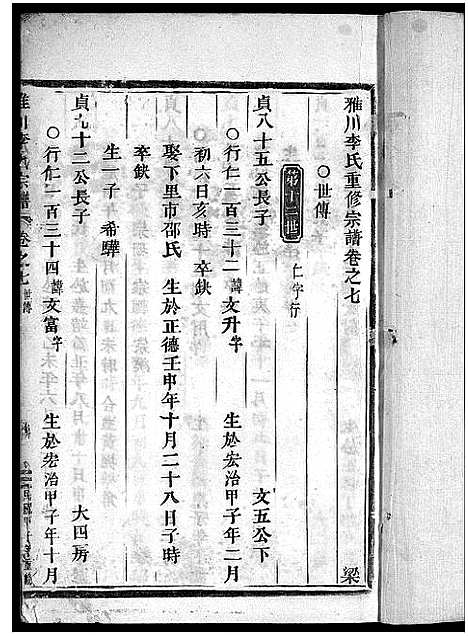 雅川李氏重修宗譜卷之七
梁
○世傳
第十二世 仁字行
貞八十五公長子 文五公下
○行仁一百三十二諱文升字 生於宏治甲子年二月
初六日亥時 卒缺
娶下里市邵氏 生於正德壬申年十月二十八日子時
卒缺
生一子 希驊
貞九十二公長子 大四房
○行仁一百三十四諱文富字 生於宏治甲子年十月
雅川李氏宗譜 卷之七 世傳